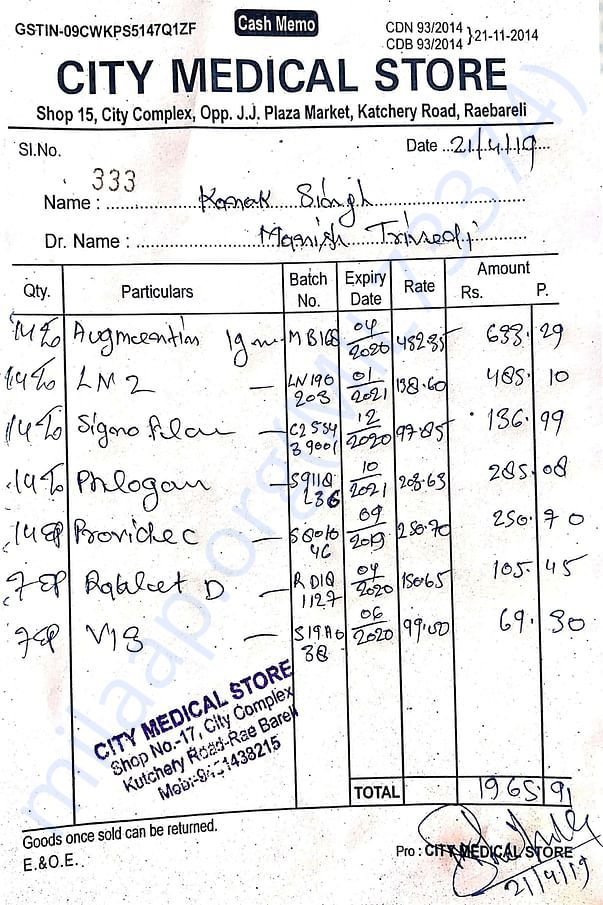 GSTIN-09CWKPS5147Q1ZF
Cash Memo
CDN 93/2014
CDB 93/2014 } 21-11-2014
CITY MEDICAL STORE
Shop 15, City Complex, Opp. J.J. Plaza Market, Katchery Road, Raebareli
Sl.No. 333
Date 21/4/19
Name : Kanak Singh
Dr. Name : Manish Trivedi
Qty. Particulars Batch No. Expiry Date Rate Amount Rs. P.
14 Augmentin 1gm MB168 04/2020 48235 633.29
14 LN2 — LN190 203 01/2021 138.60 485.10
14 — C2554 39001 12/2020 97.85 136.99
14 Phlogam — S9118 L36 10/2021 208.63 285.08
14 Providec — 09/2019 250.70 250.70
7 D — RD1Q 1127 04/2020 15065 105.45
7 — S19A0 38 06/2020 99.00 69.30
CITY MEDICAL STORE
Shop No.-17, City Complex
Kutchery Road-Rae Bareli
Mob:-9451438215
TOTAL 1965.91
Goods once sold can be returned.
E.&O.E.
Pro : CITY MEDICAL STORE
21/4/19